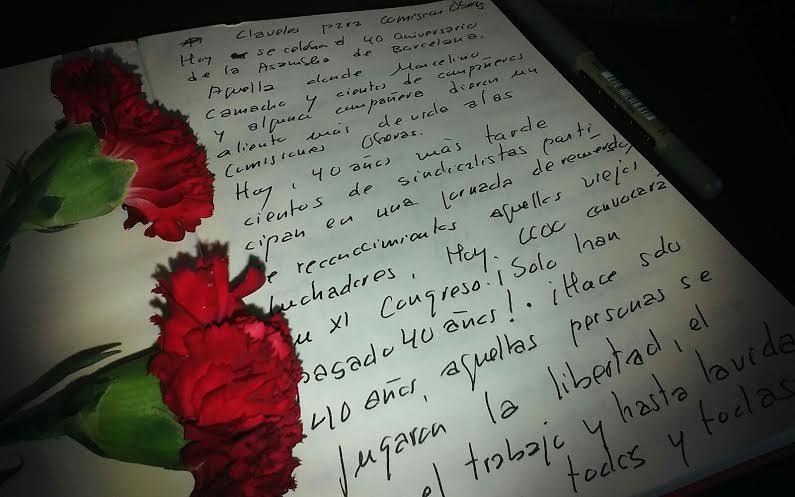 Claveles para Comisiones Obreras
Hoy se celebra el 40 aniversario
de la Asamblea de Barcelona.
Aquella donde Marcelino
Camacho y cientos de compañeros
y alguna compañera dieron un
aliento más de vida a las
Comisiones Obreras.
Hoy, 40 años más tarde
cientos de sindicalistas parti
cipan en una jornada de recuerdo
e reconocimientos aquellos viejos
luchadores. Hoy. CCOO convocará
u XI Congreso. ¡Solo han
pasado 40 años!. ¡Hace solo
40 años, aquellas personas se
jugaron la libertad, el
el trabajo y hasta la vida
todos y todas